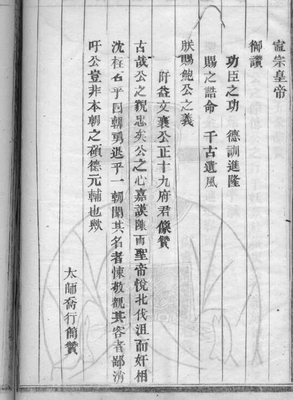 宣宗皇帝
御讚
功臣之功 德訓進隆
賜之誥命 千古遺風
朕賜鮑公之義
許益文襄公正十九府君像贊
古哉公之觀忠矣公之心嘉謨陳而聖帝悅北伐沮而奸相
沈柱石乎四朝勇退乎一朝聞其名者悚敬觀其容者鄙消
吁公豈非本朝之碩德元輔也歟
太師喬行簡贊